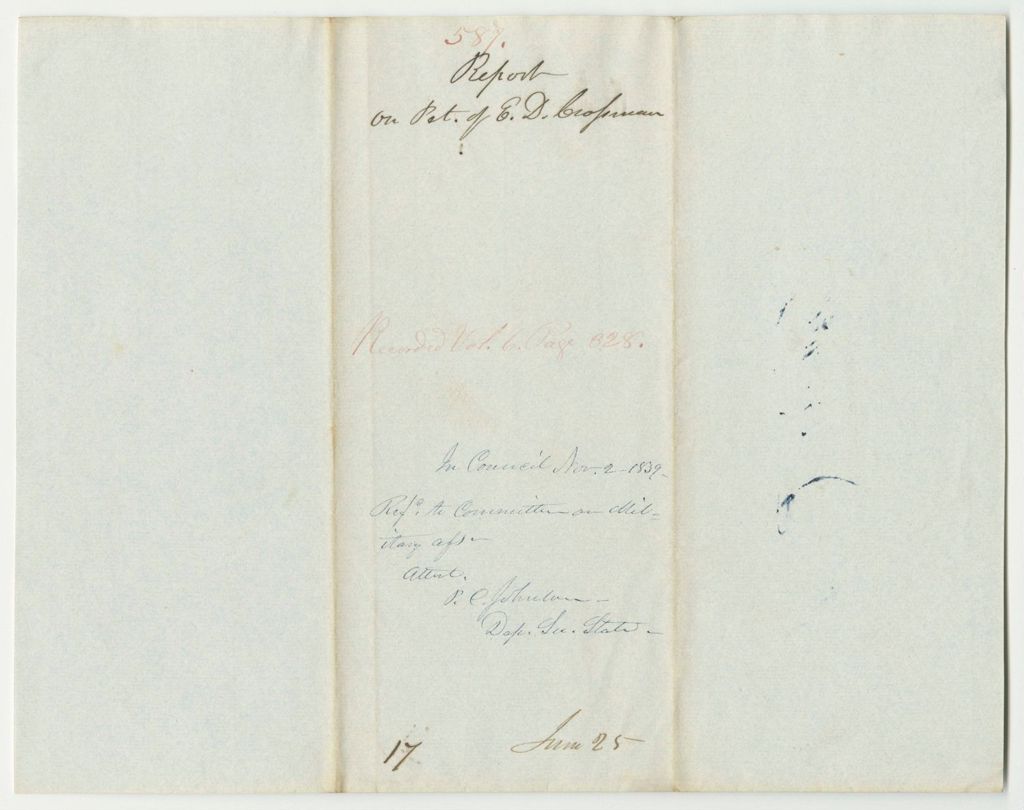 587.
Report
on Pet. of E. D. Crossman
Recorded Vol. 6. Page 328.
In Council Nov. 2 1839
Refd. to Committee on Mil=
itary affs
Attest.
P. C. Johnson
Dep. Sec. State
17 June 25